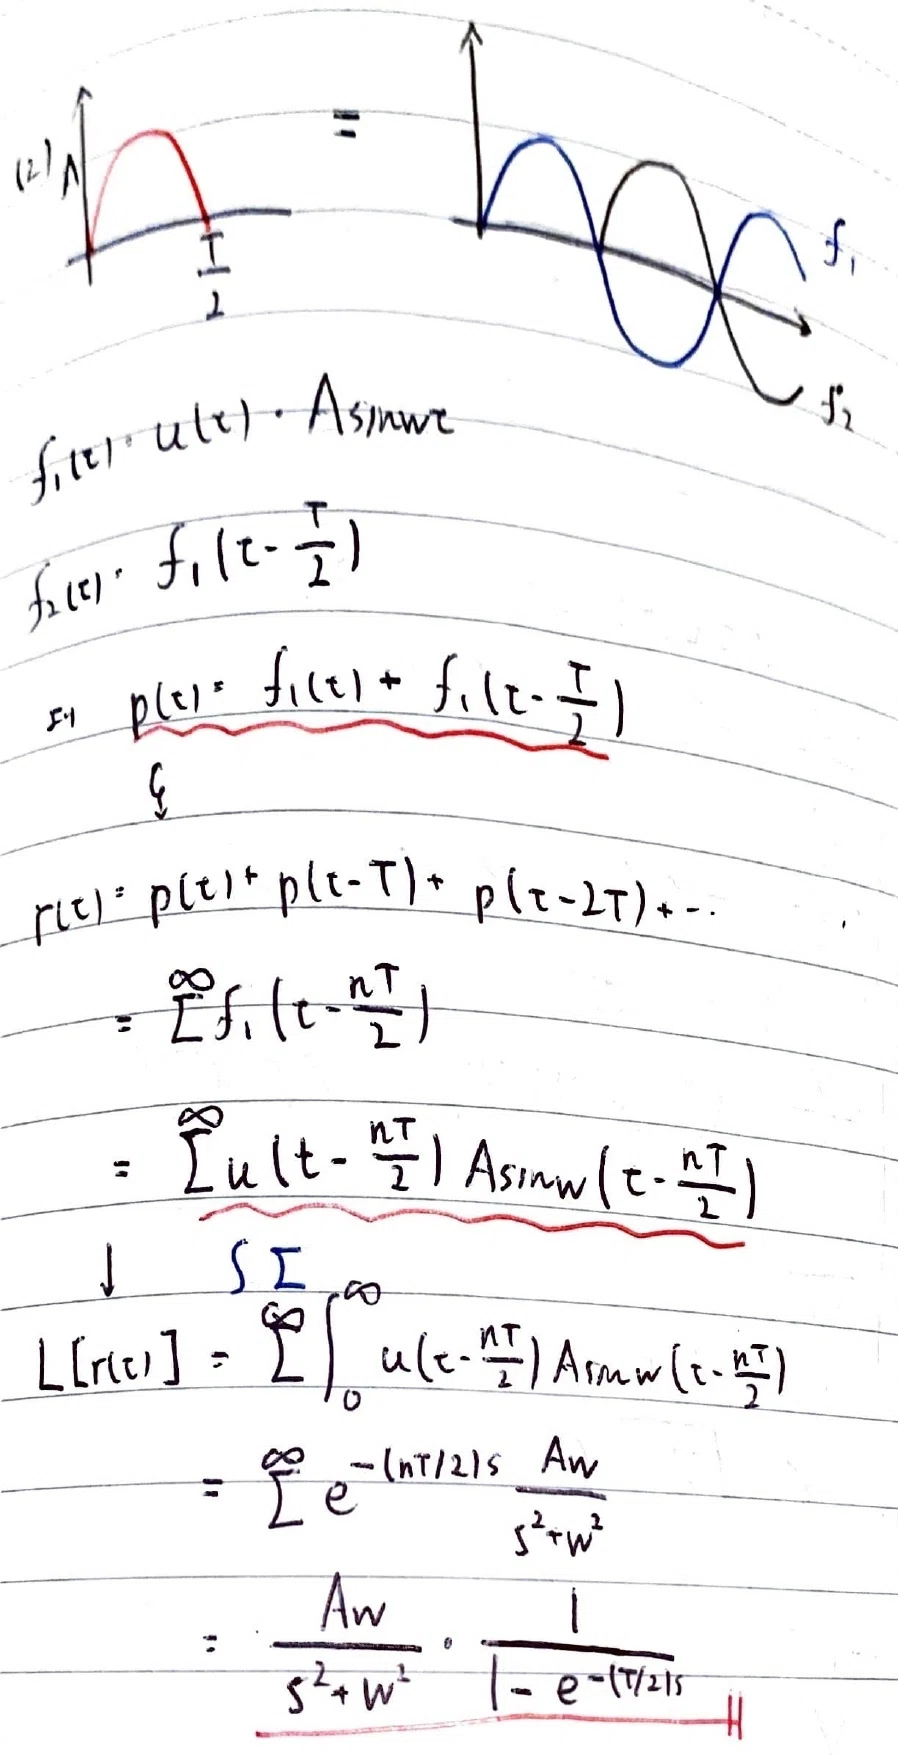 (2) A
T/2
=
f₁
f₂
f₁(t) = u(t) · A sinwt
f₂(t) = f₁(t - T/2)
より p(t) = f₁(t) + f₁(t - T/2)
r(t) = p(t) + p(t-T) + p(t-2T) + ...
= Σ^∞ f₁(t - nT/2)
= Σ^∞ u(t - nT/2) A sinw(t - nT/2)
↓ ∫ Σ
L[r(t)] = Σ^∞ ∫₀^∞ u(t - nT/2) A sinw(t - nT/2)
= Σ^∞ e^{-(nT/2)s} Aw/(s²+w²)
= Aw/(s²+w²) · 1/(1 - e^{-(T/2)s})